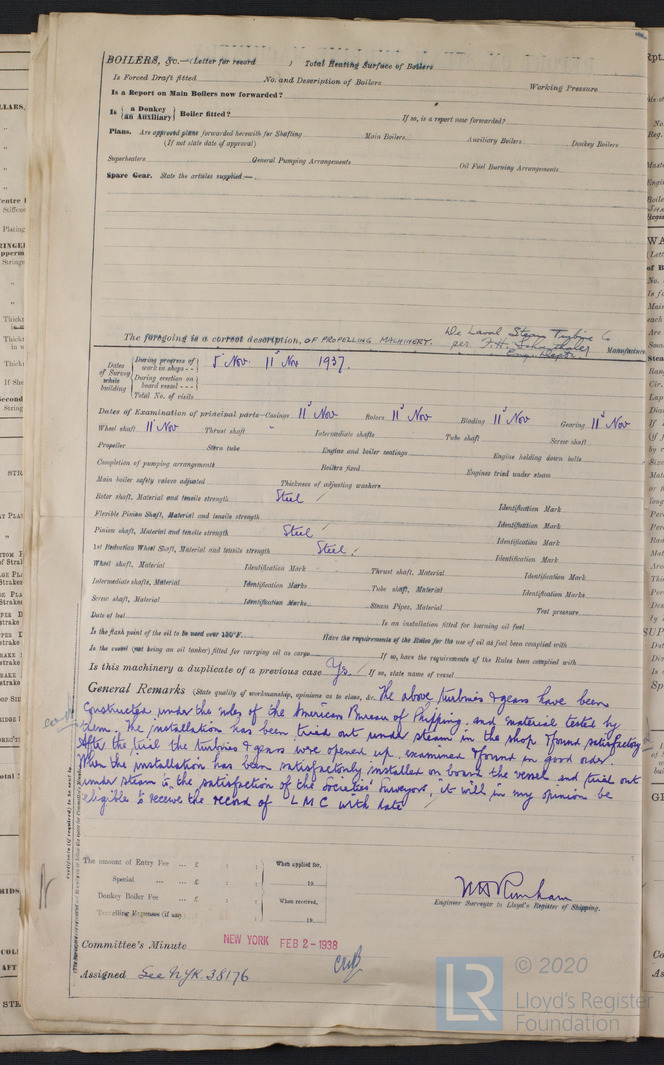 BOILERS, &c.—(Letter for record ) Total Heating Surface of Boilers
Is Forced Draft fitted No. and Description of Boilers Working Pressure
Is a Report on Main Boilers now forwarded?
Is { a Donkey / an Auxiliary } Boiler fitted? If so, is a report now forwarded?
Plans. Are approved plans forwarded herewith for Shafting Main Boilers Auxiliary Boilers Donkey Boilers
(If not state date of approval)
Superheaters General Pumping Arrangements Oil Fuel Burning Arrangements
Spare Gear. State the articles supplied:—
De Laval Steam Turbine Co
The foregoing is a correct description, OF PROPELLING MACHINERY. per F.H. Manufacturer
Dates of Survey while building
During progress of work in shops - - 5 Nov. 11 Nov 1937.
During erection on board vessel - - -
Total No. of visits
Dates of Examination of principal parts—Casings 11 Nov Rotors 11 Nov Blading 11 Nov Gearing 11 Nov
Wheel shaft 11 Nov Thrust shaft " Intermediate shafts Tube shaft Screw shaft
Propeller Stern tube Engine and boiler seatings Engine holding down bolts
Completion of pumping arrangements Boilers fixed Engines tried under steam
Main boiler safety valves adjusted Thickness of adjusting washers
Rotor shaft, Material and tensile strength Steel / Identification Mark
Flexible Pinion Shaft, Material and tensile strength Identification Mark
Pinion shaft, Material and tensile strength Steel / Identification Mark
1st Reduction Wheel Shaft, Material and tensile strength Steel / Identification Mark
Wheel shaft, Material Identification Mark Thrust shaft, Material Identification Mark
Intermediate shafts, Material Identification Marks Tube shaft, Material Identification Mark
Screw shaft, Material Identification Marks Steam Pipes, Material Test pressure
Date of test Is an installation fitted for burning oil fuel
Is the flash point of the oil to be used over 150°F. Have the requirements of the Rules for the use of oil as fuel been complied with
Is the vessel (not being an oil tanker) fitted for carrying oil as cargo If so, have the requirements of the Rules been complied with
Is this machinery a duplicate of a previous case Yes / If so, state name of vessel
General Remarks (State quality of workmanship, opinions as to class, &c. The above turbines & gears have been
constructed under the rules of the American Bureau of Shipping and material tested by
them. The installation has been tried out under steam in the shop & found satisfactory
After the trial the turbines & gears were opened up, examined & found in good order.
When the installation has been satisfactorily installed on board the vessel and tried out
under steam to the satisfaction of the Societies' Surveyors, it will in my opinion be
eligible to receive the record of L M C with date /
The amount of Entry Fee ... £ : : When applied for,
Special ... ... £ : : 19
Donkey Boiler Fee ... £ : : When received,
Travelling Expenses (if any) 19
Engineer Surveyor to Lloyd's Register of Shipping.
Committee's Minute NEW YORK FEB 2 - 1938
Assigned See NYK 38176
LR © 2020
Lloyd's Register
Foundation